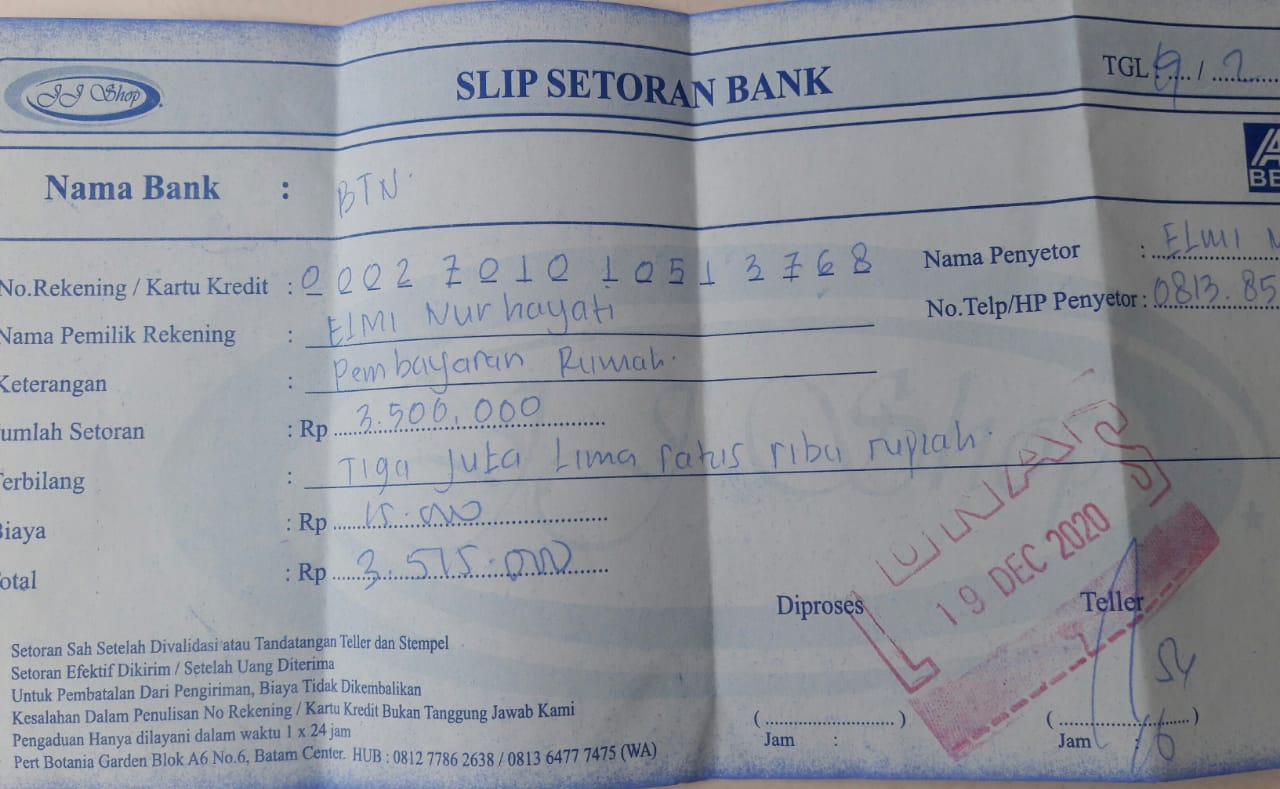 JJ Shop
SLIP SETORAN BANK
TGL : 19 / 2
Nama Bank : BTN.
BE
No.Rekening / Kartu Kredit : 0002701010513768
Nama Penyetor : ELMI N
Nama Pemilik Rekening : ELMI Nurhayati
No.Telp/HP Penyetor : 0813.85
Keterangan : Pembayaran Rumah.
umlah Setoran : Rp 3.500.000
Terbilang : Tiga Juta Lima ratus ribu rupiah.
Biaya : Rp 15.000
otal : Rp 3.515.000
LUNAS
19 DEC 2020
Diproses
Teller
Setoran Sah Setelah Divalidasi atau Tandatangan Teller dan Stempel
Setoran Efektif Dikirim / Setelah Uang Diterima
Untuk Pembatalan Dari Pengiriman, Biaya Tidak Dikembalikan
Kesalahan Dalam Penulisan No Rekening / Kartu Kredit Bukan Tanggung Jawab Kami
Pengaduan Hanya dilayani dalam waktu 1 x 24 jam
Pert Botania Garden Blok A6 No.6, Batam Center. HUB : 0812 7786 2638 / 0813 6477 7475 (WA)
(....................) (....................)
Jam : Jam :